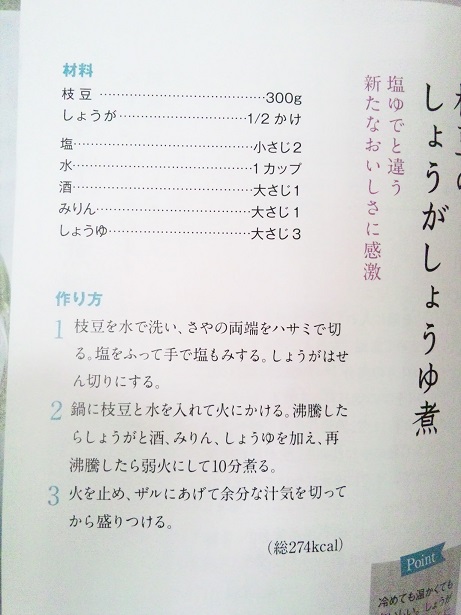 しょうがしょうゆ煮
塩ゆでと違う
新たなおいしさに感激
材料
枝豆……………………………300g
しょうが……………………1/2かけ
塩……………………………小さじ2
水……………………………1カップ
酒……………………………大さじ1
みりん………………………大さじ1
しょうゆ……………………大さじ3
作り方
1 枝豆を水で洗い、さやの両端をハサミで切
る。塩をふって手で塩もみする。しょうがはせ
ん切りにする。
2 鍋に枝豆と水を入れて火にかける。沸騰した
らしょうがと酒、みりん、しょうゆを加え、再
沸騰したら弱火にして10分煮る。
3 火を止め、ザルにあげて余分な汁気を切って
から盛りつける。
(総274kcal)
Point
冷めても温かくても